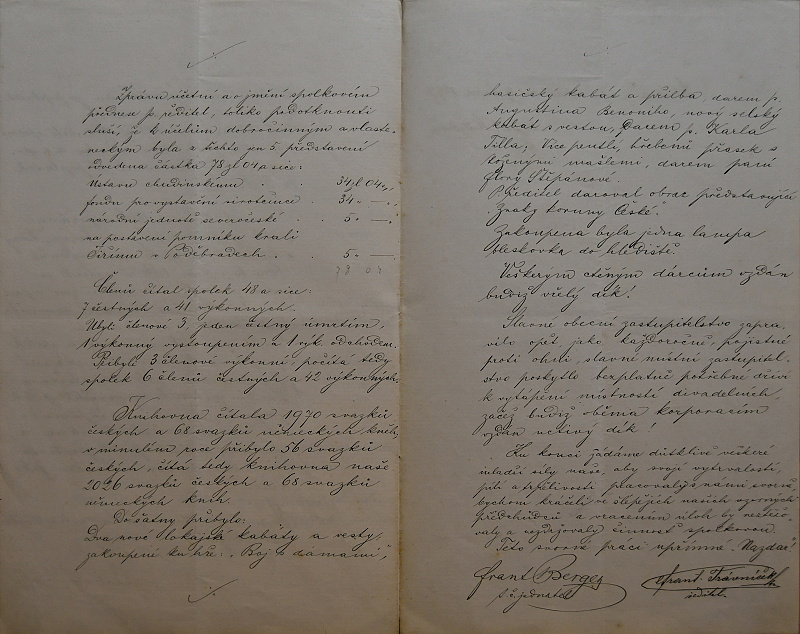 Zprávu účetní a o jmění spolkovém
přednese p. ředitel, toliko podotknouti
sluší, že k účelům dobročinným a vlaste-
neckým byla z těchto jen 5 představení
odvedena částka 78 zl 04 a sice:
Ustavu chudinskému . . 34 zl 04 „
fondu pro vystavení sirotčince . 34 „ — „
národní jednotě severočeské . 5 „ — „
na postavení pomníku krali
Jiřímu v Poděbradech . . 5 „ —
78 04
Členů čítal spolek 48 a sice:
7 čestných a 41 výkonných.
Ubyli členové 3, jeden čestný úmrtím,
1 výkonný vystoupením a 1 výk. odchodem.
Přibyli 3 členové výkonní, počítá tedy
spolek 6 členů čestných a 42 výkonných.
Knihovna čítala 1970 svazků
českých a 68 svazků německých kněh,
v minulém roce přibylo 56 svazků
českých, čítá tedy knihovna naše
2026 svazků českých a 68 svazků
německých kněh.
Do šatny přibylo:
Dva nové lokajské kabáty a vesty,
zakoupené ku hře: „Boj s dámami",
hasičský kabát a přilba, darem p.
Augustina Benoniho, nový selský
kabát s vestou, Darem p. Karla
Tilla; Více pentlí, třebené přasek s
koženými mašlemi, darem paní
Štěpánové.
P. ředitel daroval obraz představující
„Znaky koruny České".
Zakoupena byla jedna lampa
bleskovka do hlediště.
Veškerým ctěným dárcům vzdán
budiž vřelý dík!
Slavné obecní zastupitelstvo zapra-
vilo opět, jako každoročně, pojistné
proti ohni, slavné místní zastupitel-
stvo poskytlo bezplatně potřebné dříví
k vytápění místností divadelních,
začež budiž oběma korporacím
vzdán uctivý dík!
Ku konci žádáme důtklivě veškeré
mladší síly naše, aby svojí vytrvalostí,
pílí a trpělivostí pracovaly s námi svorně,
bychom kráčeli ve šlépějích našich vzorných
předchůdců a vracením úloh by nestěžo-
valy a nezdržovaly činnost spolkovou.
Této svorné práci upřímné „Nazdar"
Frant Berger
t. č. jednatel
Frant. Trávníček
ředitel.